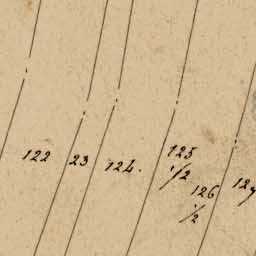 122 23 124. 125
1/2
126
1/2
127